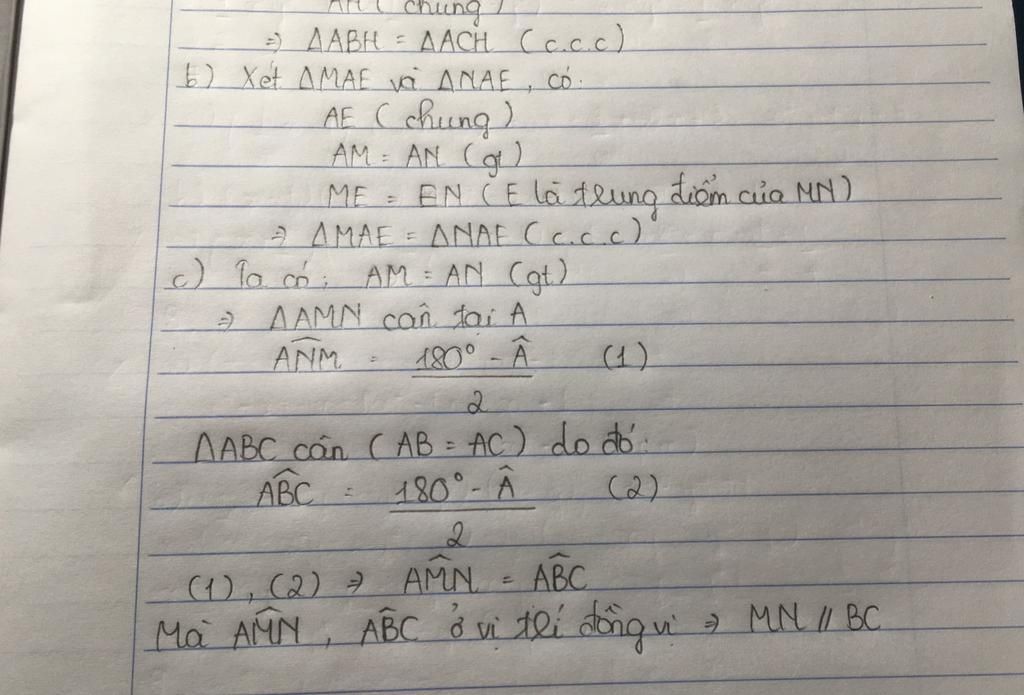 AH ( chung )
=> ΔABH = ΔACH ( c.c.c )
b) Xét ΔMAE và ΔNAE , có:
AE ( chung )
AM = AN ( gt )
ME = EN ( E là trung điểm của MN )
=> ΔMAE = ΔNAE ( c.c.c )
c) Ta có: AM = AN (gt)
=> ΔAMN cân tại A
\widehat{ANM} = \frac{180° - \hat{A}}{2} (1)
ΔABC cân ( AB = AC ) do đó:
\widehat{ABC} = \frac{180° - \hat{A}}{2} (2)
(1), (2) => \widehat{AMN} = \widehat{ABC}
Mà \widehat{AMN} , \widehat{ABC} ở vị trí đồng vị => MN // BC